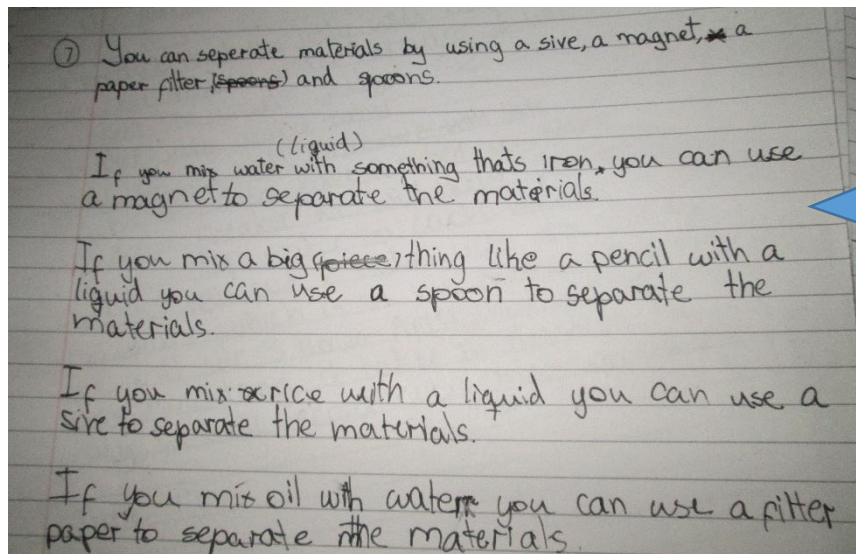 ⑦ You can seperate materials by using a sive, a magnet, a
paper filter, (spoons) and spoons.
(liquid)
If you mix water with something thats iron, you can use
a magnet to separate the materials.
If you mix a big (peiece) thing like a pencil with a
liquid you can use a spoon to separate the
materials.
If you mix rice with a liquid you can use a
sive to separate the materials.
If you mix oil with water you can use a filter
paper to separate the materials.